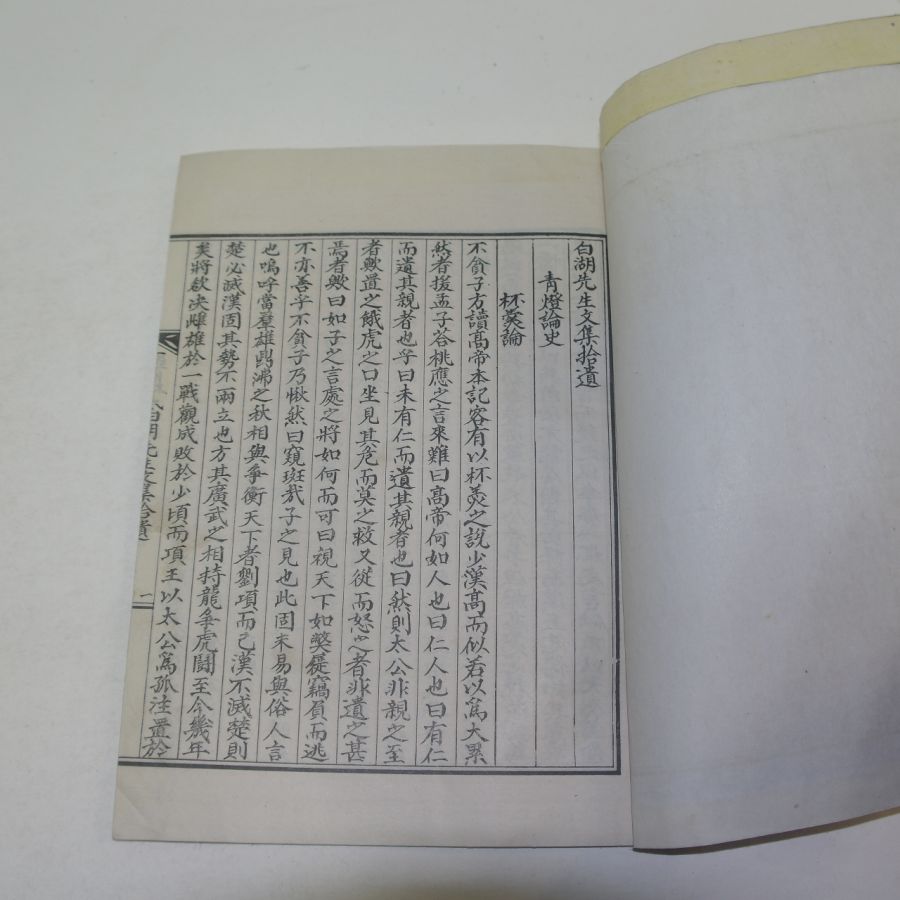 白湖先生文集拾遺
青燈論史
杯羹論
不貪子方讀高帝本記客有以杯羹之說少漢高而似若以爲大累
然者援孟子答桃應之言來難曰高帝何如人也曰仁人也曰有仁
而遺其親者也乎曰未有仁而遺其親者也曰然則太公非親之至
者歟置之餓虎之口坐見其危而莫之救又從而怒之者非遺之甚
焉者歟曰如子之言處之將如何而可曰視天下如弊屣竊負而逃
不亦善乎不貪子乃愀然曰窺斑哉子之見也此固未易與俗人言
也嗚呼當羣雄鼎沸之秋相與爭衡天下者劉項而已漢不滅楚則
楚必滅漢固其勢不兩立也方其廣武之相持龍爭虎鬪至今幾年
矣將欲决雌雄於一戰觀成敗於少頃而項王以太公爲孤注置於
白湖先生文集拾遺
一